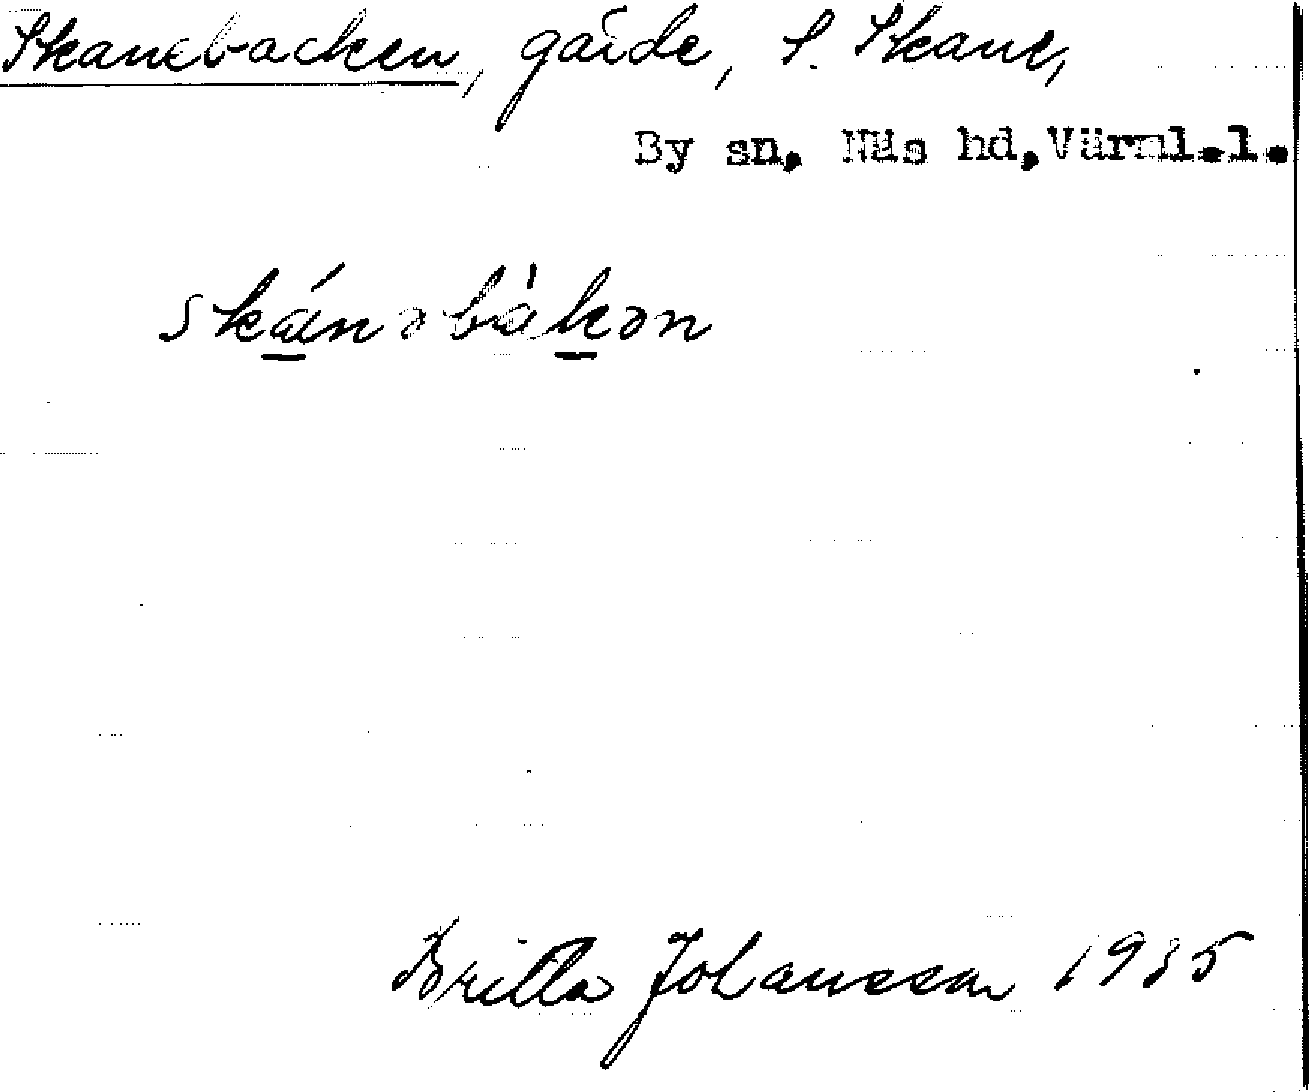 Skanebacken, gärde, S. Skane,
By sn, Näs hd, Värml.l.
skánəbàkən
Britta Johansson 1935